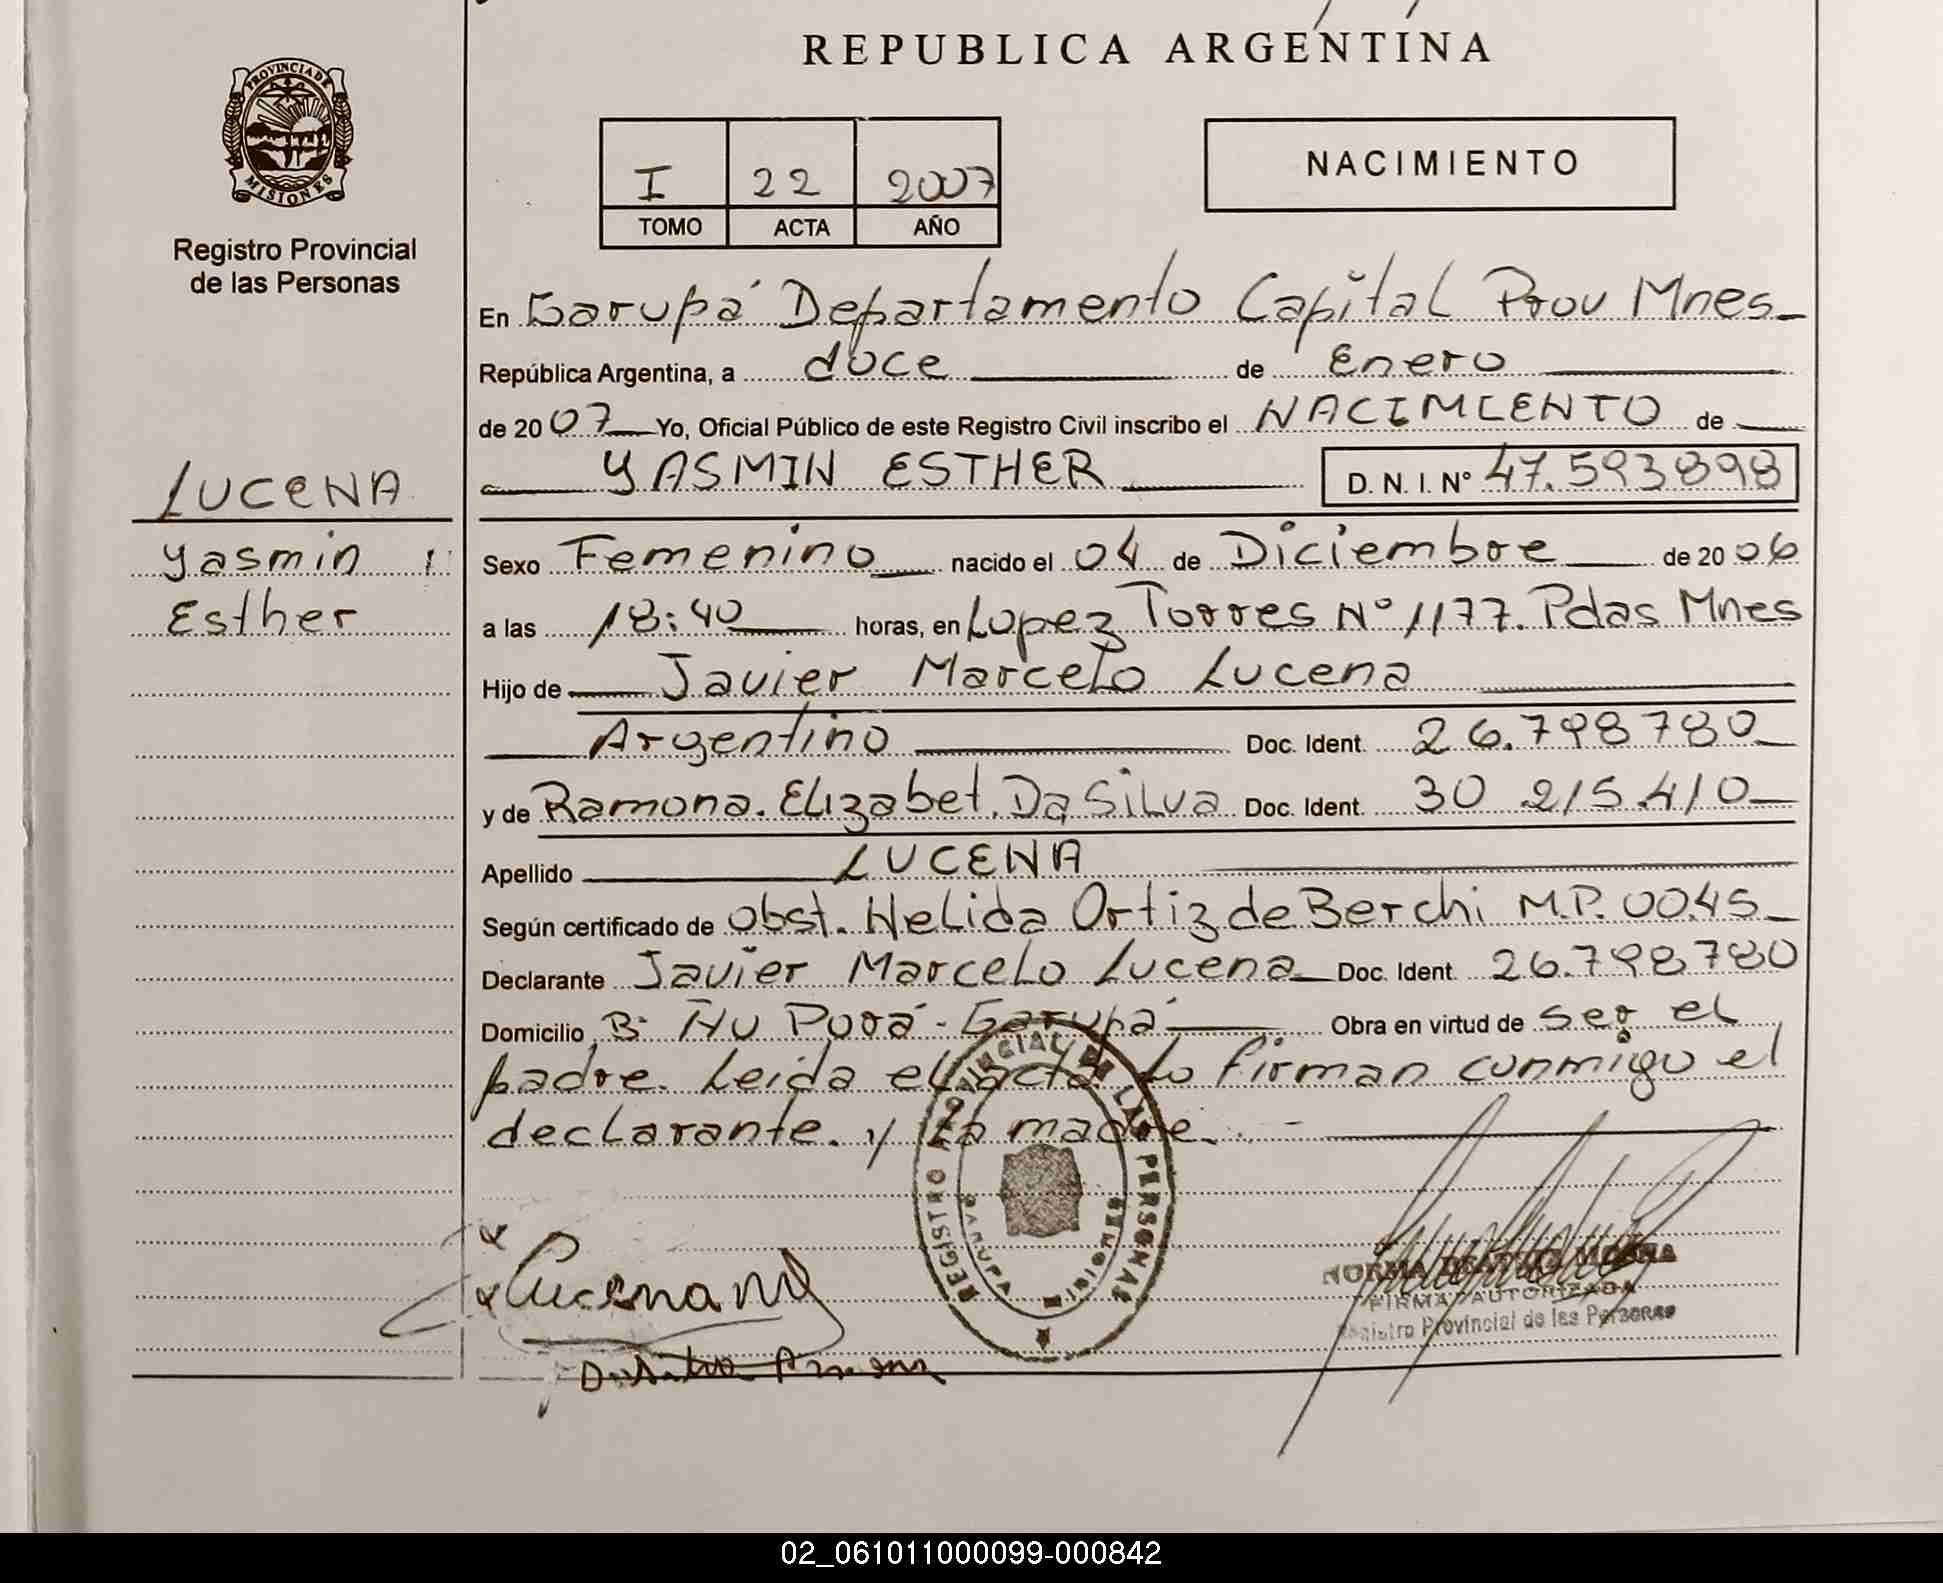 REPUBLICA ARGENTINA
PROVINCIA DE
MISIONES
Registro Provincial
de las Personas
I 22 2007
TOMO ACTA AÑO
NACIMIENTO
En Garupá Departamento Capital Prov Mnes
República Argentina, a doce de Enero
de 2007 Yo, Oficial Público de este Registro Civil inscribo el NACIMIENTO de
YASMIN ESTHER D. N. I. Nº 47.593898
LUCENA
Yasmin
Esther
Sexo Femenino nacido el 04 de Diciembre de 2006
a las 18:40 horas, en Lopez Torres Nº 1177. Pdas Mnes
Hijo de Javier Marcelo Lucena
Argentino Doc. Ident. 26.798780
y de Ramona. Elizabet. Da Silva Doc. Ident. 30 215.410
Apellido LUCENA
Según certificado de Obst. Nelida Ortiz de Berchi M.P. 0045
Declarante Javier Marcelo Lucena Doc. Ident. 26.798780
Domicilio B· Ñu Porá - Garupá Obra en virtud de ser el
padre. Leida el acta Lo firman conmigo el
declarante. y La madre.
REGISTRO PROVINCIAL DE LAS PERSONAS
GARUPA MISIONES
Lucena
FIRMA AUTORIZADA
Registro Provincial de las Personas
02_061011000099-000842